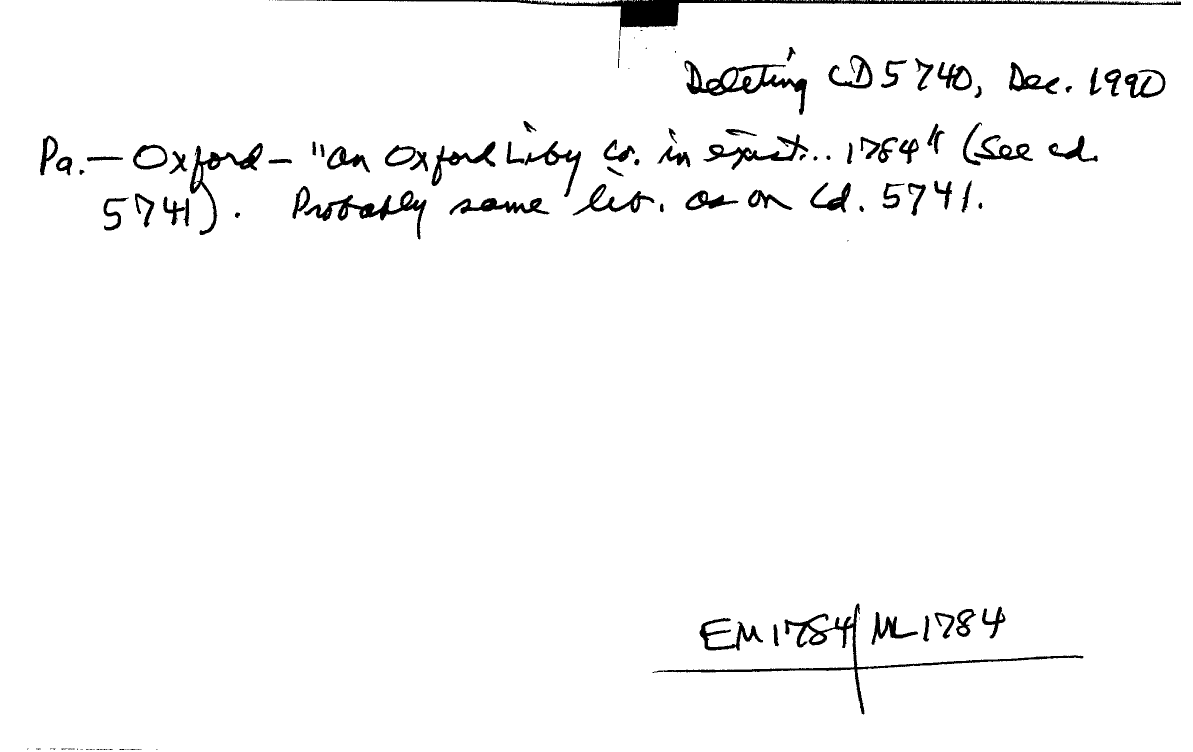 Deleting CD 5740, Dec. 1990
Pa.— Oxford — "an Oxford Liby Co. in exist... 1784" (See cd.
5741). Probably same lib. as on Cd. 5741.
EM 1784 ML 1784